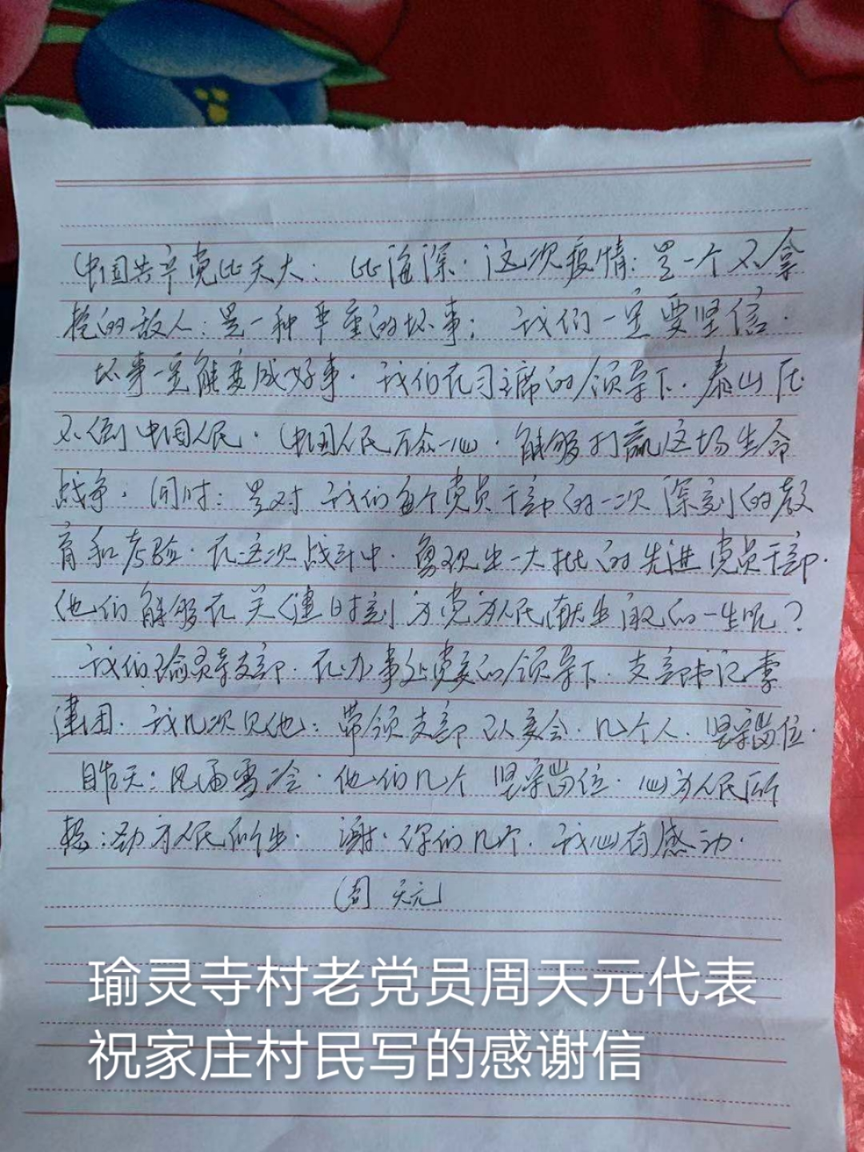 中国共产党比天大：比海深．这次疫情：是一个不拿
枪的敌人：是一种严重的坏事；我们一定要坚信．
坏事一定能变成好事．我们在习主席的领导下．泰山压
不倒中国人民．中国人民万众一心．能够打赢这场生命
战争．同时：是对我们每个党员干部的一次深刻的教
育和考验．在这次战斗中．勇现出一大批的先进党员干部．
他们能够在关健时刻为党为人民献出的一生呢？
我们瑜灵寺支部．在办事处党委的领导下．支部书记李
建国．我几次见他：带领支部队委会．几个人．坚守岗位．
昨天：风雨雪冷．他们几个坚守岗位．心为人民所
想：劲为人民所使．谢．你们几个．我心有感动．
周天元
瑜灵寺村老党员周天元代表
祝家庄村民写的感谢信